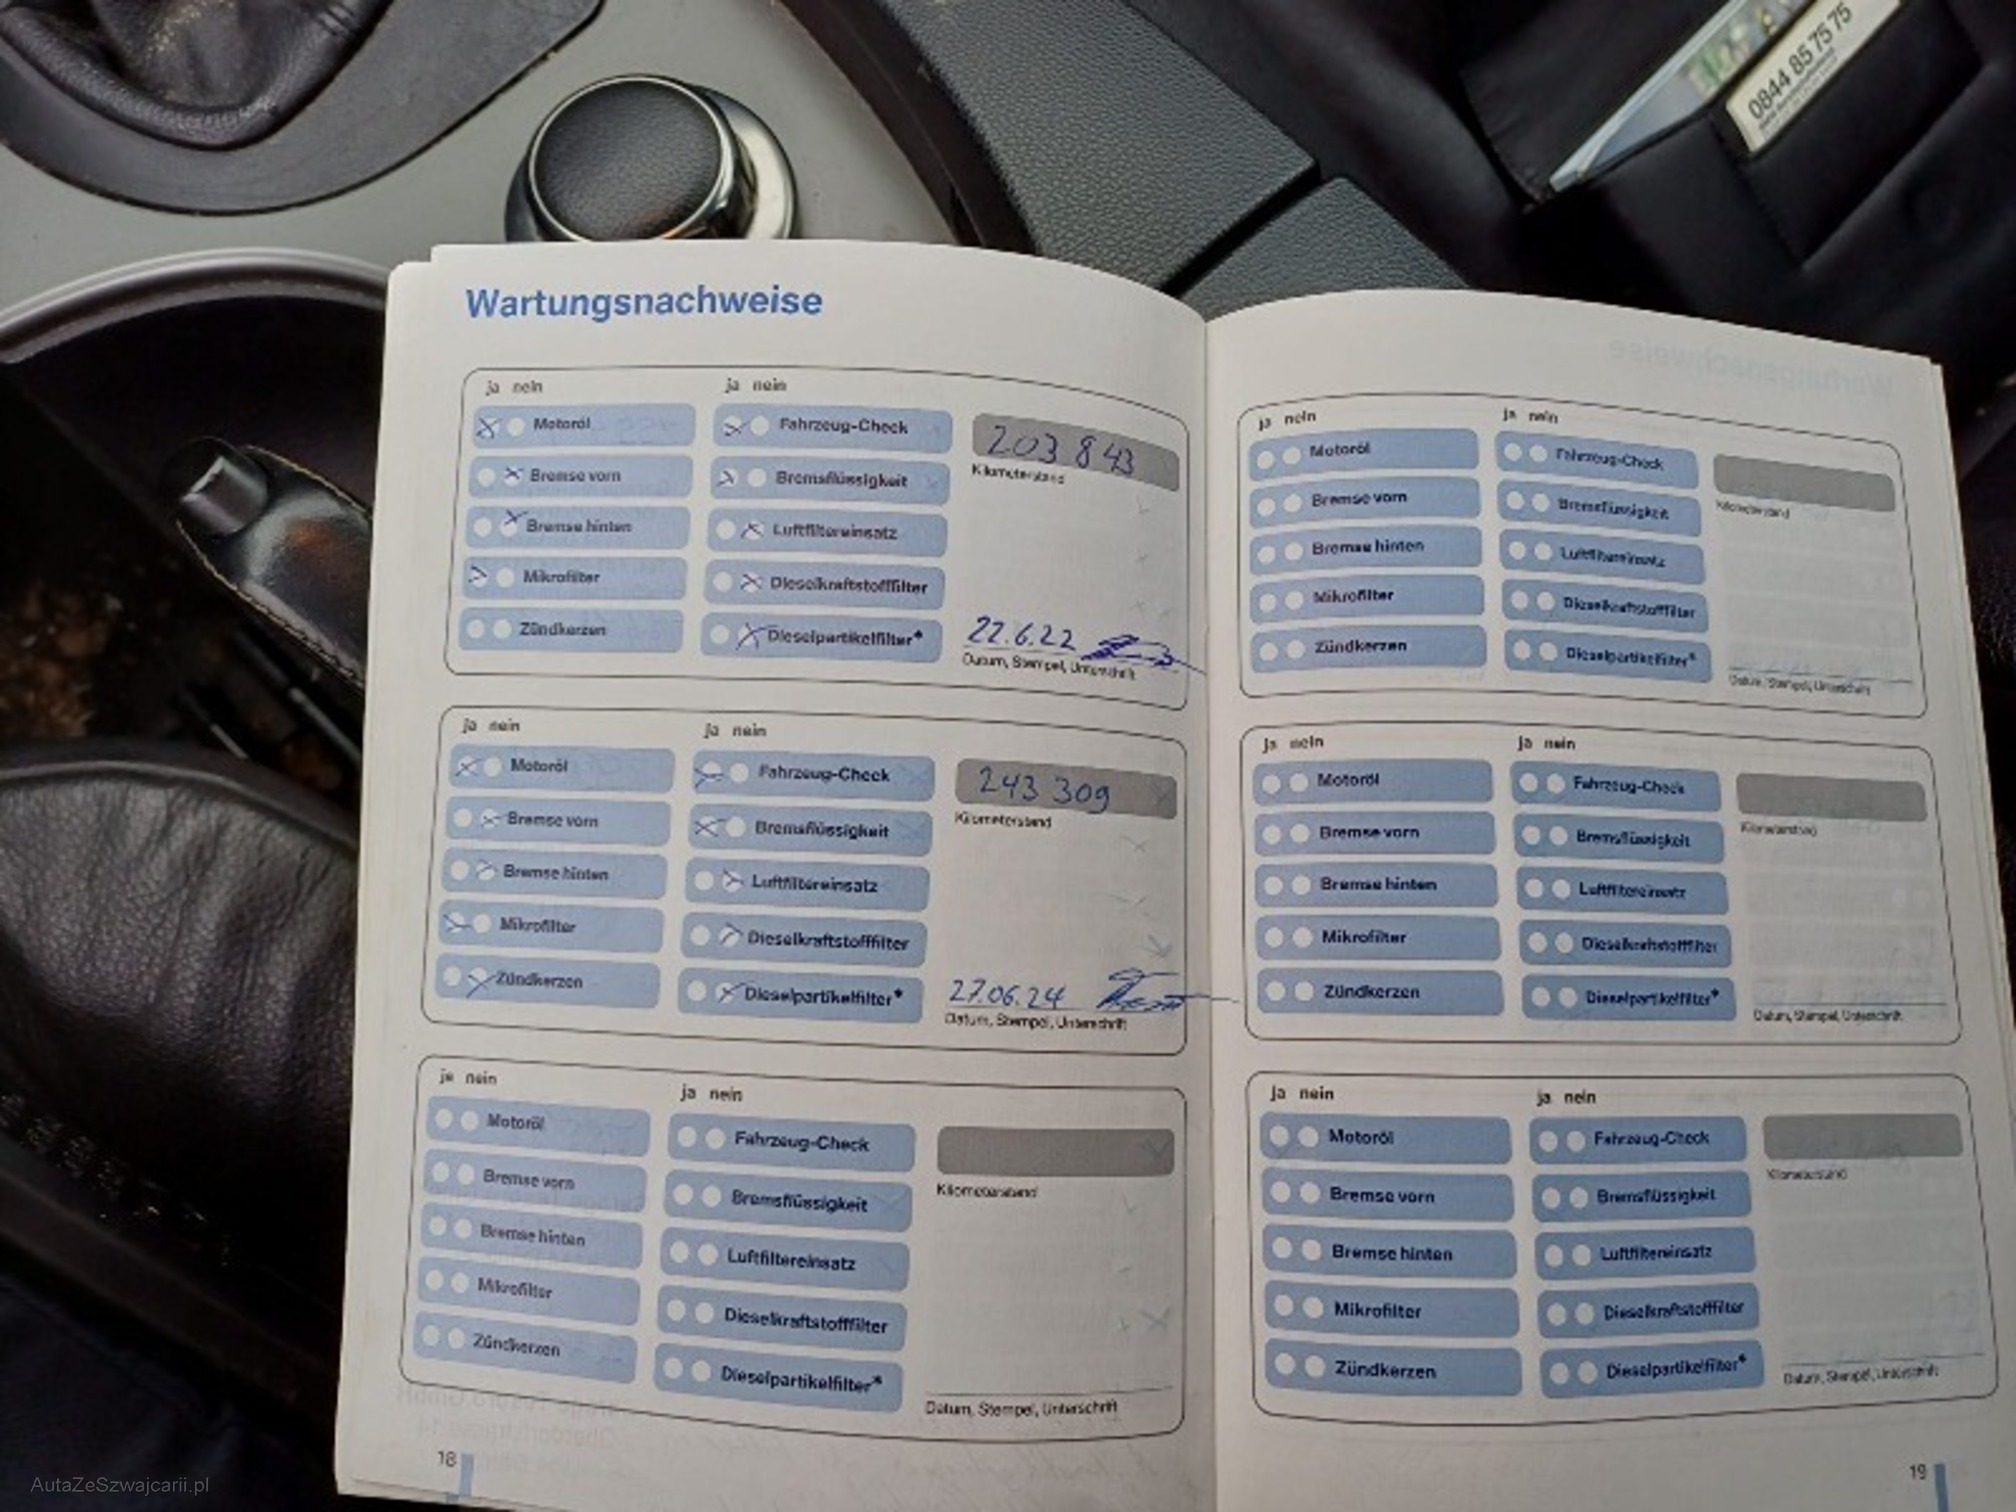 0844 85 75 75
Wartungsnachweise
ja nein
ja nein
Motoröl
Fahrzeug-Check
203 843
Bremse vorn
Bremsflüssigkeit
Kilometerstand
Bremse hinten
Luftfiltereinsatz
Mikrofilter
Dieselkraftstofffilter
Zündkerzen
Dieselpartikelfilter*
22.6.22
Datum, Stempel, Unterschrift
ja nein
ja nein
Motoröl
Fahrzeug-Check
243 309
Bremse vorn
Bremsflüssigkeit
Kilometerstand
Bremse hinten
Luftfiltereinsatz
Mikrofilter
Dieselkraftstofffilter
Zündkerzen
Dieselpartikelfilter*
27.06.24
Datum, Stempel, Unterschrift
ja nein
ja nein
Motoröl
Fahrzeug-Check
Bremse vorn
Bremsflüssigkeit
Kilometerstand
Bremse hinten
Luftfiltereinsatz
Mikrofilter
Dieselkraftstofffilter
Zündkerzen
Dieselpartikelfilter*
Datum, Stempel, Unterschrift
18
ja nein
ja nein
Motoröl
Fahrzeug-Check
Bremse vorn
Bremsflüssigkeit
Kilometerstand
Bremse hinten
Luftfiltereinsatz
Mikrofilter
Dieselkraftstofffilter
Zündkerzen
Dieselpartikelfilter*
Datum, Stempel, Unterschrift
ja nein
ja nein
Motoröl
Fahrzeug-Check
Bremse vorn
Bremsflüssigkeit
Kilometerstand
Bremse hinten
Luftfiltereinsatz
Mikrofilter
Dieselkraftstofffilter
Zündkerzen
Dieselpartikelfilter*
Datum, Stempel, Unterschrift
ja nein
ja nein
Motoröl
Fahrzeug-Check
Bremse vorn
Bremsflüssigkeit
Kilometerstand
Bremse hinten
Luftfiltereinsatz
Mikrofilter
Dieselkraftstofffilter
Zündkerzen
Dieselpartikelfilter*
Datum, Stempel, Unterschrift
19
AutaZeSzwajcarii.pl